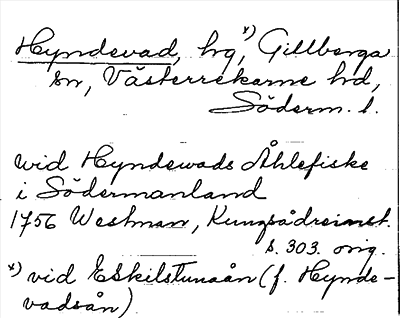 Hyndevad, hrg,ˣ⁾ Gillberga
sn, Västerrekarne hd,
Söderm. l.
wid Hyndewads Åhlefiske
i Södermanland
1756 Westman, Kungsådreinst.
s. 303. orig.
ˣ⁾ vid Eskilstunaån (f. Hynde-
vadsån)